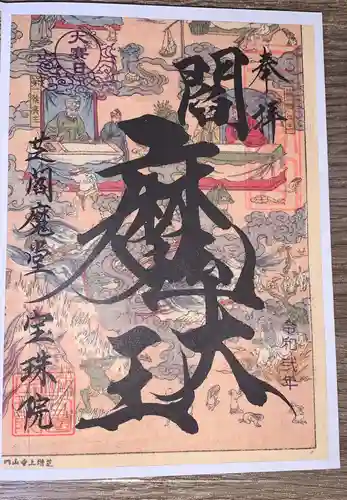 奉拝
令和弐年
閻魔大王
大賽日
芝閻魔堂 宝珠院
芝増上寺山内